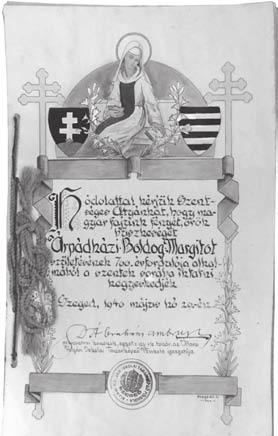 Hódolattal kérjük Szent-
séges Atyánkat, hogy ma-
gyar fajunk fényét, örök
büszkeségét
Árpádházi Boldog Margitot
születésének 700. évfordulója alkal-
mából a szentek sorába iktatni
kegyeskedjék
Szeged, 1940 május hó 20-én